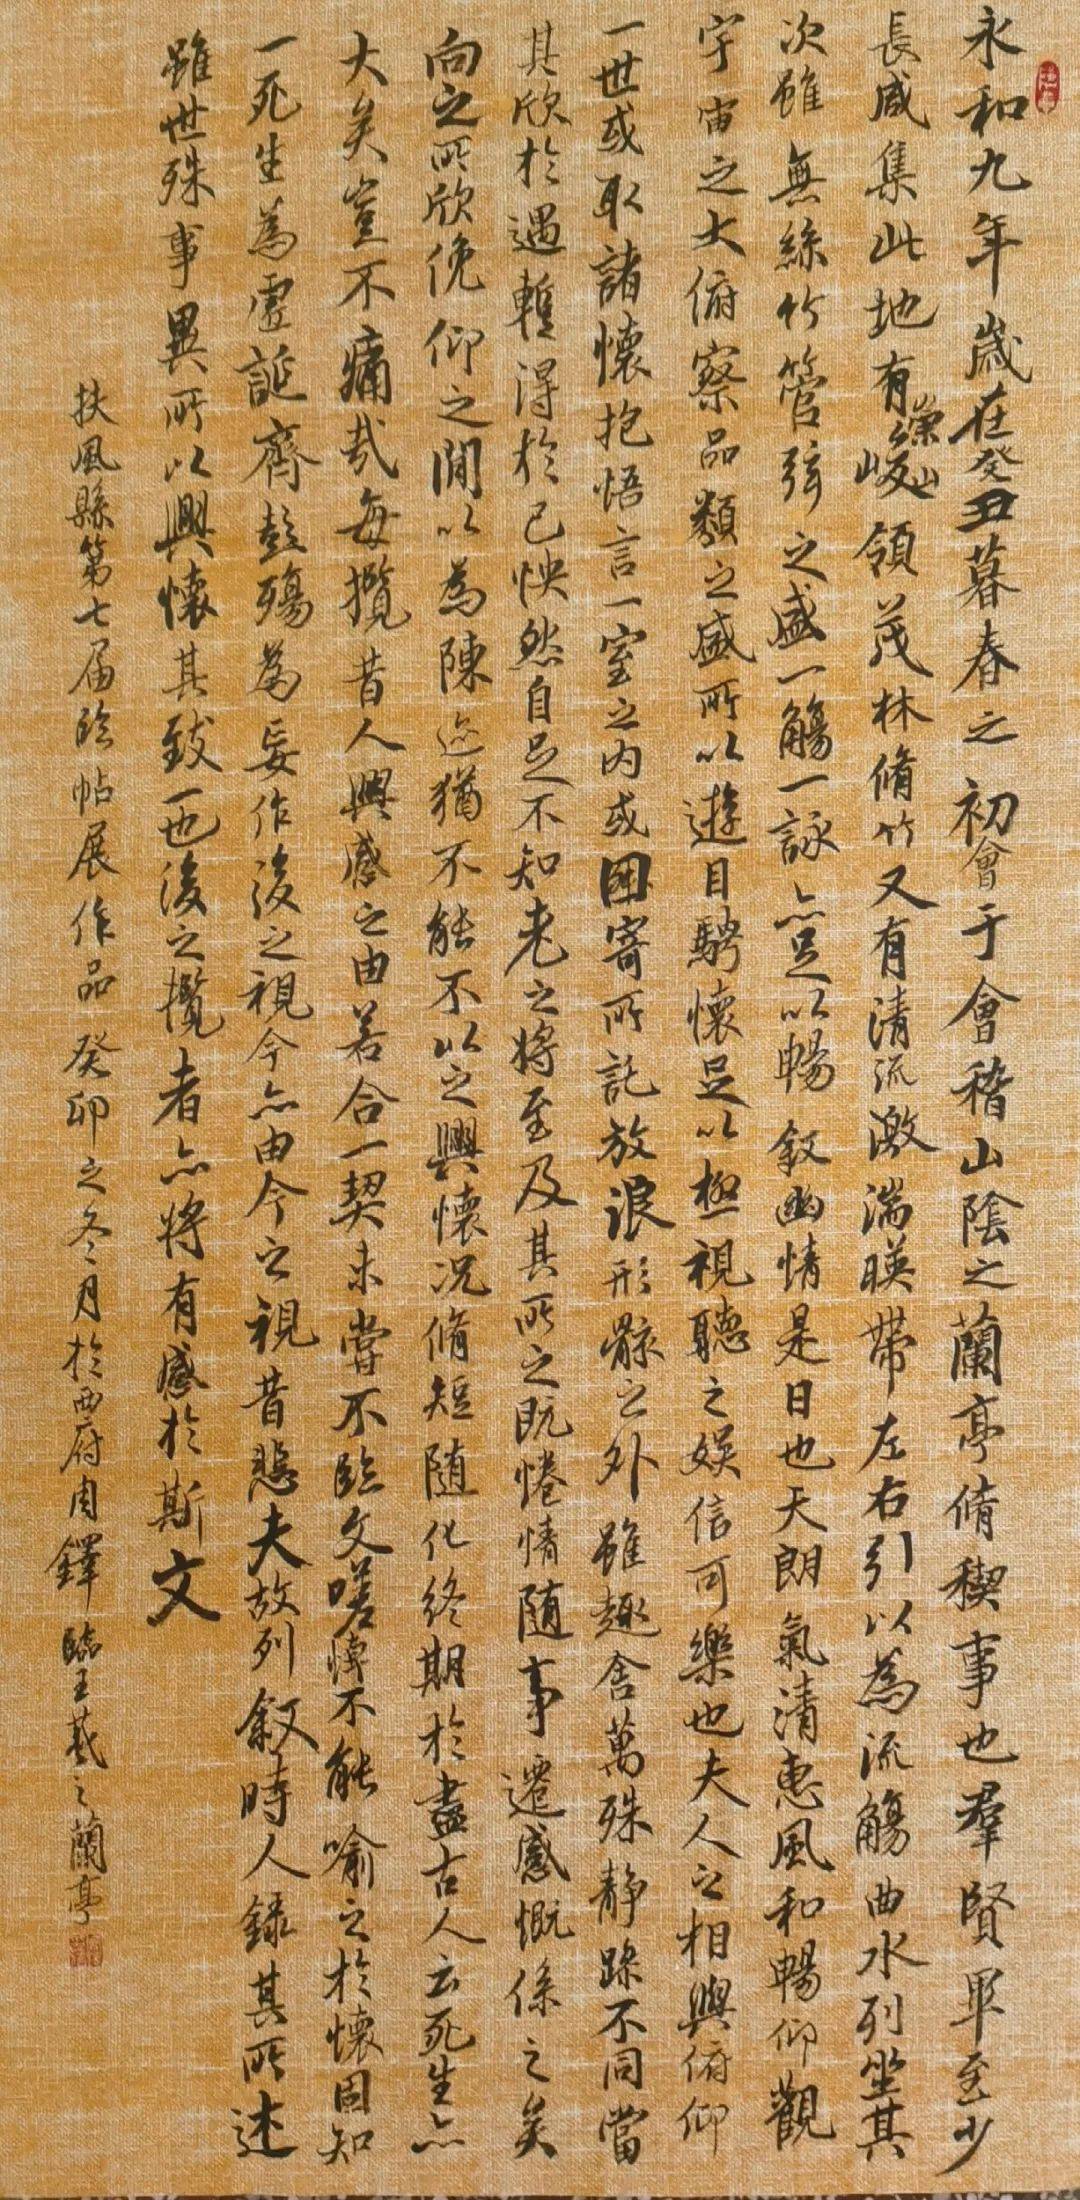 永和九年歲在癸丑暮春之初會于會稽山陰之蘭亭脩稧事也羣賢畢至少
長咸集此地有崇山峻領茂林脩竹又有清流激湍暎帶左右引以為流觴曲水列坐其
次雖無絲竹管弦之盛一觴一詠亦足以暢敘幽情是日也天朗氣清惠風和暢仰觀
宇宙之大俯察品類之盛所以遊目騁懷足以極視聽之娛信可樂也夫人之相與俯仰
一世或取諸懷抱悟言一室之內或因寄所託放浪形骸之外雖趣舍萬殊静躁不同當
其欣於遇暫得於己怏然自足不知老之將至及其所之既惓情随事遷感慨係之矣
向之所欣俛仰之閒以為陳迹猶不能不以之興懷况脩短随化終期於盡古人云死生亦
大矣豈不痛哉每攬昔人興感之由若合一契未嘗不臨文嗟悼不能喻之於懷固知
一死生為虛誕齊彭殤為妄作後之視今亦由今之視昔悲夫故列敘時人錄其所述
雖世殊事異所以興懷其致一也後之攬者亦將有感於斯文
扶風縣第七届臨帖展作品癸卯之冬月於西府周鐸臨王羲之蘭亭